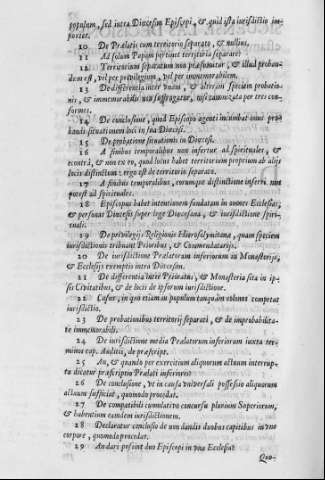 populum, sed intra Diœcesim Episcopi, & quid ista iurisdictio importet.
10 De Prælatis cum territorio separato, & nullius.
11 Ad solum Papam pertinet territoria separare.
12 Territorium separatum non præsumitur, & illud probandum est, vel per privilegium, vel per immemorabilem.
13 De differentia inter unam, & alteram speciem probationis, & immemorabilis non suffragatur, nisi canonizata per tres conformes.
14 De conclusione, quod Episcopo agenti incumbit onus probandi situationem loci in sua Diœcesi.
15 De probatione situationis in Diœcesi.
16 A finibus temporalibus non infertur ad spirituales, & econtrà, & non ex eo, quod locus habet territorium proprium ab alijs locis distinctum: ergo est de territorio separato.
17 A finibus temporalibus, eorumque distinctione inferri non potest ad spirituales.
18 Episcopus habet intentionem fundatam in omnes Ecclesias, & personas Diœcesis super lege Diœcesana, & iurisdictione spirituali.
19 De privilegijs Religionis Hierosolymitanæ, quam speciem iurisdictionis tribuant Prioribus, & Commendatarijs.
20 De iurisdictione Prælatorum inferiorum in Monasterijs, & Ecclesijs exemptis intra Diœcesim.
21 De differentia inter Prioratus, & Monasteria sita in ipsis Civitatibus, & de locis de ipsorum iurisdictione.
22 Casus, in quo etiam in populum tanquam colonos competat iurisdictio.
23 De probationibus territorij separati, & de improbabilitate immemorabilis.
24 De iurisdictione media Prælatorum inferiorum iuxta terminos cap. Auditis, de præscript.
25 An, & quando per exercitium aliquorum actuum interruptio dicatur præscriptio Prælati inferioris?
26 De conclusione, ut in causa universali possessio aliquorum actuum sufficiat, quomodo procedat.
27 De compatibili cumulativo concursu plurium Superiorum, & habentium eamdem iurisdictionem.
28 Declaratur conclusio de non dandis duobus capitibus in uno corpore, quomodo procedat.
29 An dari possint duo Episcopi in una Ecclesia?
Quo-